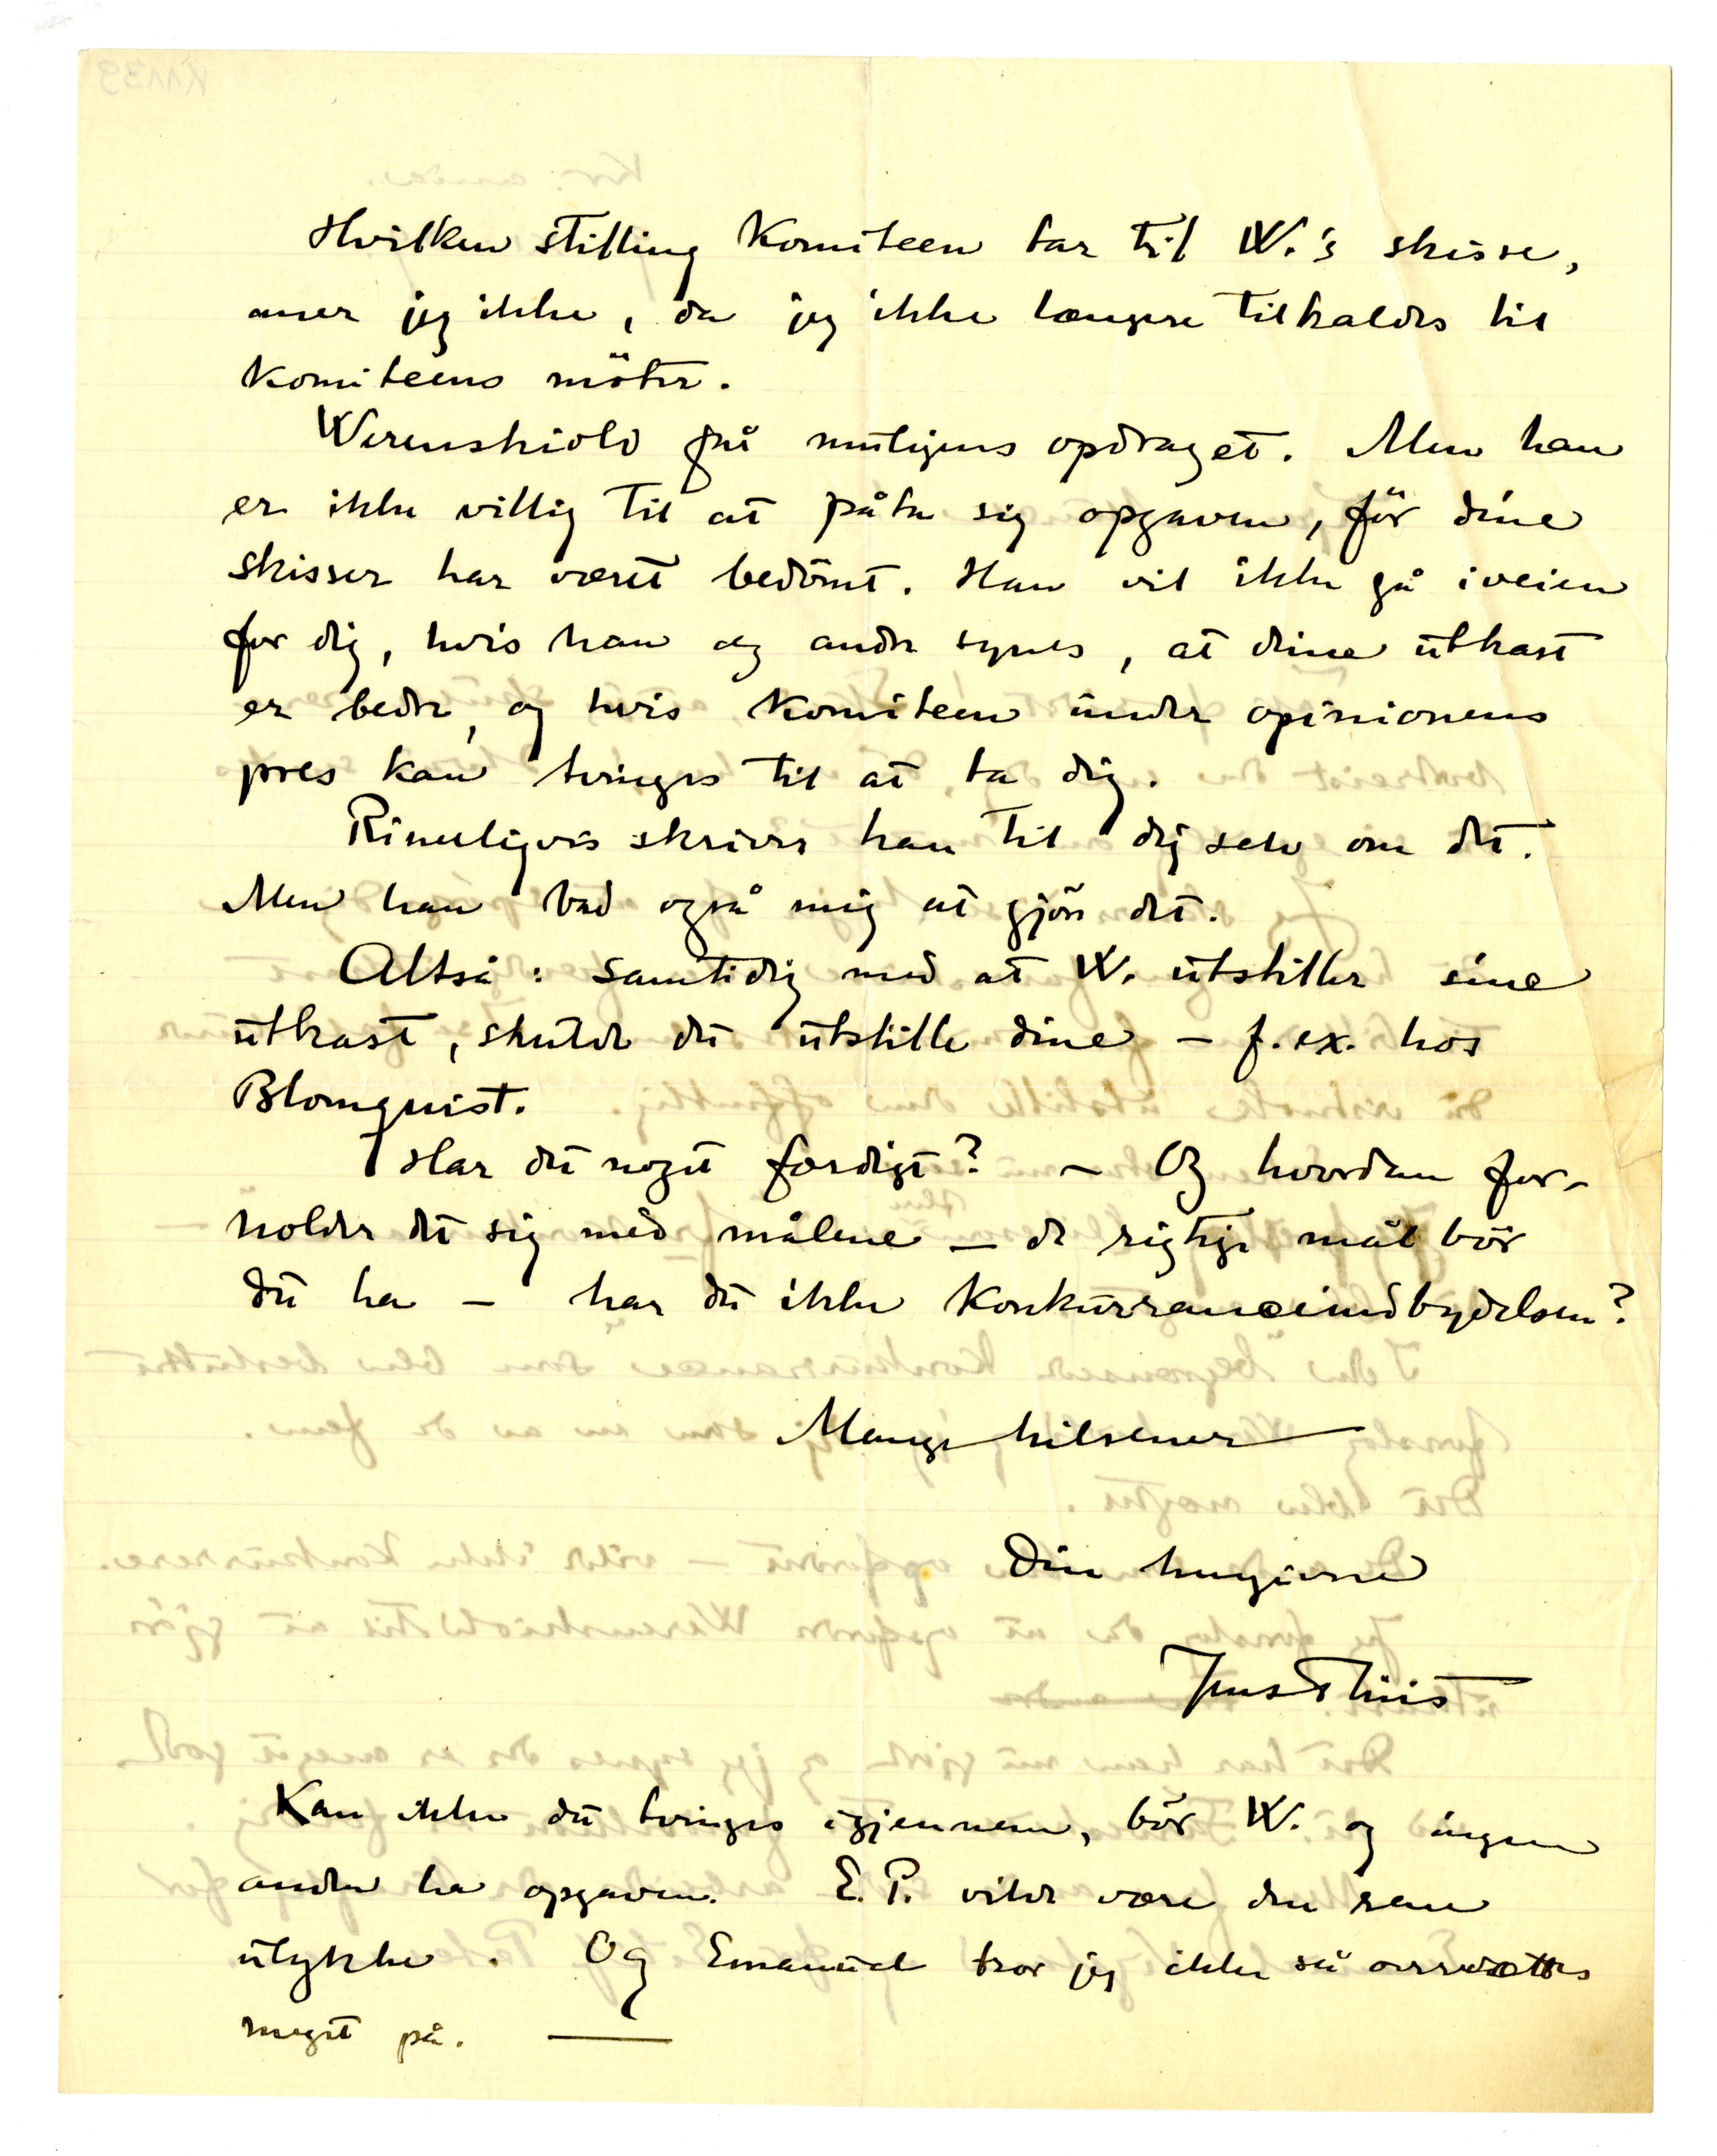 Hvilken stilling Komiteen tar til W.'s skisse,
aner jeg ikke, da jeg ikke længere tilkaldes til
Komiteens möter.
Werenskiold får muligens opdraget. Men han
er ikke villig til at påta sig opgaven, för dine
skisser har været bedömt. Han vil ikke gå i veien
for dig, hvis han og andre synes, at dine utkast
er bedre, og hvis Komiteen under opinionens
pres kan tvinges til at ta dig.
Rimeligvis skriver han til dig selv om det.
Men han bad også mig at gjöre det.
Altså: samtidig med at W. utstiller sine
utkast, skulde du utstille dine – f. ex. hos
Blomqvist.
Har du noget færdigt? – Og hvordan for-
holder det sig med målene – de rigtige mål bör
du ha – har du ikke Konkurranceindbydelsen?
Mange hilsener
Din hengivne
Jens Thiis
Kan ikke du tvinges igjennem, bör W. og ingen
anden ha opgaven. E. P. vilde være den rene
ulykke. Og Emanuel tror jeg ikke så overvættes
meget på.